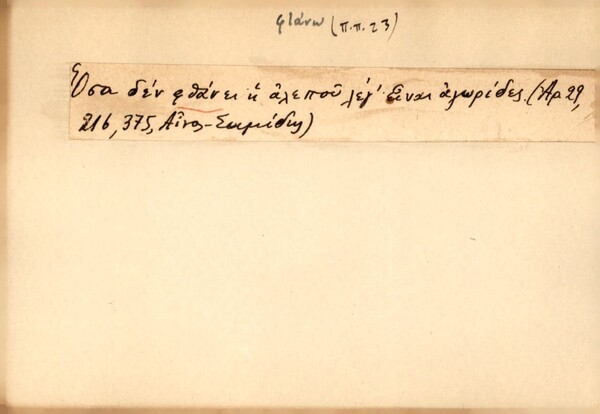 φτάνω (π.π. 23)
Ὅσα δέν φθάνει ἡ ἀλεποῦ λέγ' εἶναι ἀγωρίδες (Ἀρ 29,
216, 375, Αἶνος - Σαμίδης)